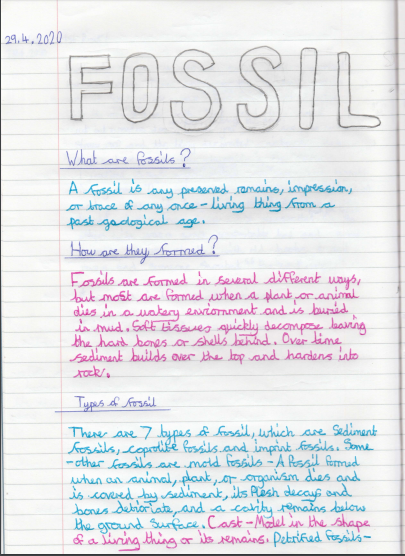 29.4.2020
FOSSIL
What are fossils?
A fossil is any preserved remains, impression,
or trace of any once-living thing from a
past geological age.
How are they formed?
Fossils are formed in several different ways,
but most are formed when a plant or animal
dies in a watery enviornment and is buried
in mud. Soft tissues quickly decompose leaving
the hard bones or shells behind. Over time
sediment builds over the top and hardens into
rock.
Types of fossil
There are 7 types of fossil, which are Sediment
fossils, coprolite fossils and imprint fossils. Some
-other fossils are mold fossils - A fossil formed
when an animal, plant, or organism dies and
is covered by sediment, its flesh decays and
bones deterioate, and a cavity remains below
the ground surface. Cast - Model in the shape
of a living thing or its remains. Petrified fossils-